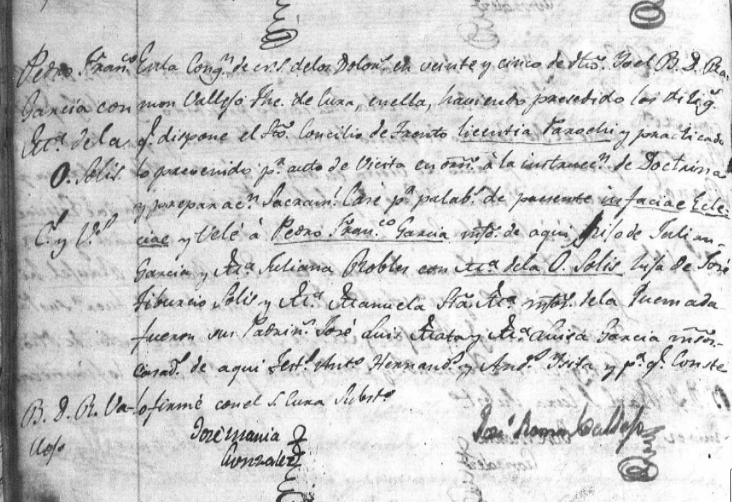 Pedro Fran.co
Garcia con
Ma. de la
O. Solis
C.s y V.s
En la Cong.n de N. S. de los Dolor.s en veinte y cinco de dho. Yo el B. D. Ra-
mon Vallejo The. de Cura, en ella, haviendo precedido las dilig.s
q.e dispone el Sto. Concilio de Trento licentia Parochi y practicado
lo prevenido p.r auto de Vicita en orn. à la instrucc.n de Doctrina
y preparac.n Sacram.l Casé p.r palab.s de presente in faciae Ecle-
ciae y Velé à Pedro Fran.co Garcia mso. de aqui hijo de Julian
Garcia y Ma. Juliana Robles con Ma. de la O. Solis hija de José
Tiburcio Solis y Ma. Manuela Sta. Ma. de la Quemada
fueron sus Padrin.s José Luis Mata y Ma. Luisa Garcia
casad.s de aqui test.s Anto. Hernand.z y And.s y p.a q.e Conste
lo firmé con el S. Cura Subst.o
B. D. R. Va-
llejo
José Maria
Gonzalez
José Ramon Vallejo